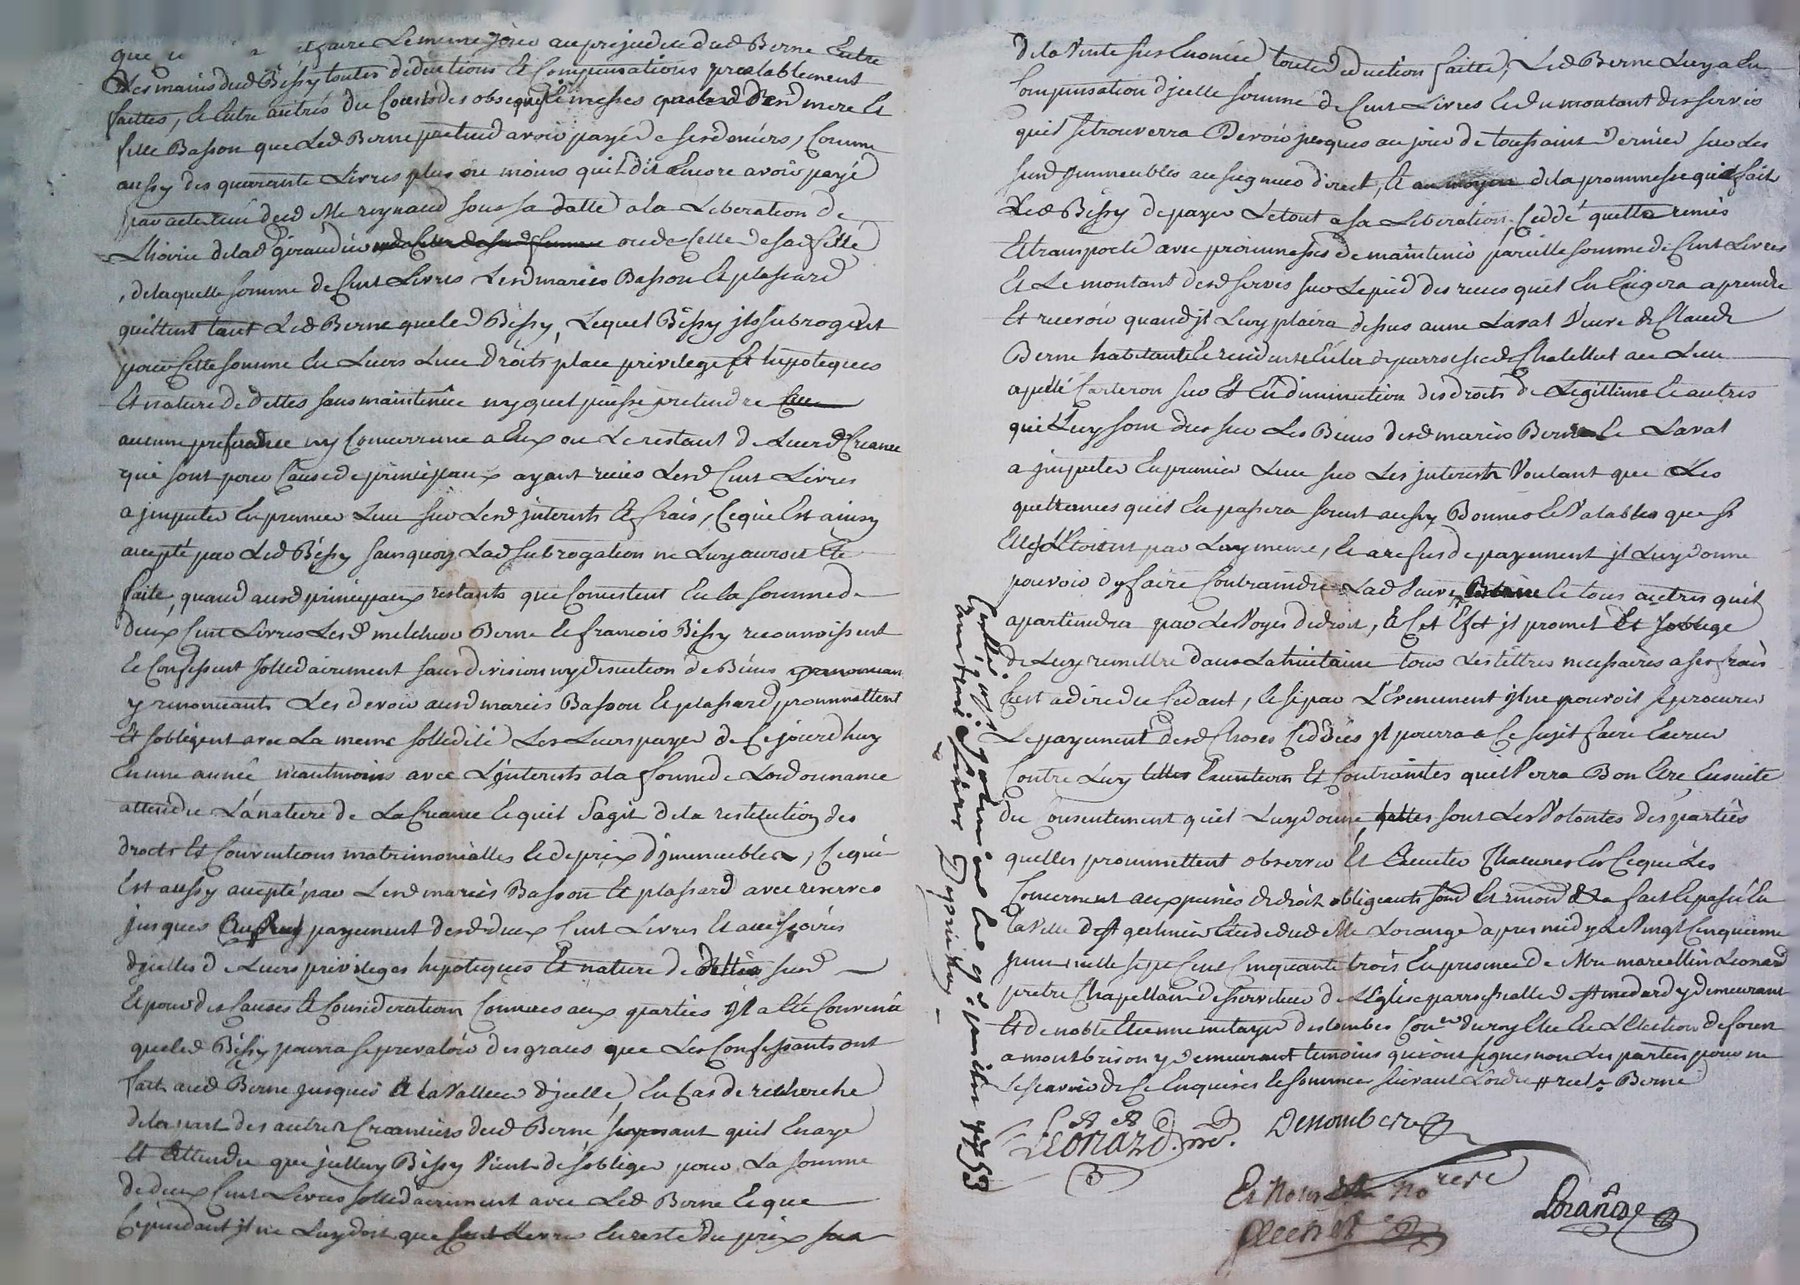 faire le meme jour au prejudice dud Berne entre
Les mains dud Bessy toutes deductions et compensations prealablement
faittes, et entre autres du Cout des obseques et messes desd mere et
fille Basson que led Berne pretend avoir payé de ses deniers, comme
aussy des quarante Livres plus ou moins quil dit Encore avoir payé
par acte receu dud Me reynaud sous sa datte a la Liberation de
Lhoirie de lad Giraudier ou de celle de sad fille
, de laquelle somme de Cent Livres Lesd mariés Basson Et plassard
quittent tant Led Berne que led Bessy, Lequel Bessy jls subrogent
pour Cette somme En Leurs Lieu droits place privilege Et hipoteques
Et nature de dettes sans maintenüe ny quil puisse pretendre
aucune preferance ny Concurrance a Eux ou Le restant de Leursd Creance
qui sont pour Cause de principaux ayant receu Lesd Cent Livres
a jmputer En premier Lieu sur Lesd jnterests Et frais, Ce qui Est ainsy
accepté par Led Bessy sans quoy Lad subrogation ne Luy auroit Eté
faite, quand ausd principaux restants qui Consistent En la somme de
deux Cent Livres Lesd melchior Berne Et francois Bessy reconnoissent
Et Confessent sollidairement sans division ny discution de Biens
y renoncants Les devoir ausd mariés Basson Et plassard, prommettent
Et sobligent avec La meme sollidité Les Leurs payer de Ce jourdhuy
En une année neantmoins avec Ljnterests a la forme de Lordonnance
attendu La nature de La Creance Et quil Sagit de la restitution des
droits Et Conventions matrimonialles Et de prix djmmeubles, Ce qui
Est aussy accepté par Lesd mariés Basson Et plassard avec reserves
jusques payement desd deux Cent Livres Et accessoires
djcelles de Leurs privileges hipoteques Et nature de dettes susd
Et pour des Causes Et Considerations Connues aux parties jl a Eté Convenu
que led Bessy pourra se prevaloir des graces que Les Confessants ont
fait aud Berne jusques a la Valleur djcelle En Cas de recherche
de la part des autres Creanciers dud Berne suposant quil En aye
Et attendu que jcelluy Bessy Vient de sobliger pour La somme
de deux Cent Livres sollidairement avec Led Berne Et que
Cependant jl ne Luy doit que Cent Livres En reste du prix
de la Vente sus Enoncée toute deduction faitte, Led Berne Luy a En
Compensation djcelle somme de Cent Livres Et du montant des servis
quil se trouverra Devoir jusques au jour de toussaint Dernier sur Les
susd jmmeubles au seigneur direct, Et au moyen de la prommesse que fait
Led Bessy de payer Le tout a sa Liberation, Ceddé quitté remis
Et transporté avec prommesses de maintenir pareille somme de Cent Livres
Et Le montant desd servis sur Le pied des receus quil En Exigera a prendre
Et recevoir quand jl Luy plaira dessus anne Laval Veuve de Claude
Berne habitante Et residente parroisse de Chatellut au Lieu
apellé Carteron sur Et En diminution des droits de Legittime Et autres
qui Luy sont dües sur Les Biens desd mariés Berne Et Laval
a jmputer En premier Lieu sur Les jnterests Voulant que Les
quittances quil En passera soient aussy Bonnes Et Valables que si
Elles Etoient par Luy meme, Et a refus de payement jl Luy donne
pouvoir dy faire Contraindre Lad Veuve Et tous autres quil
apartiendra par Les Voyes de droit, Et a Cet Efet jl promet Et soblige
de Luy remettre dans La huitaine tous Les tittres necessaires a ses frais
Cest a dire du Cedant, Et si par LEvenement jl ne pouvoit se procurer
Le payement desd choses Ceddées jl pourra a Ce sujet faire
Contre Luy telles Executions Et Contraintes quil Verra Bon Etre Ensuite
du Consentement quil Luy donne, telles sont Les Volontes des parties
quelles prommettent observer Et Executer Chacunes En Ce qui Les
Concernent aux peines de droit obligeants soum Et renon fait Et passé En
La Ville de St galmier Etude dud Me Lorange apres midy Le Vingt Cinquieme
juin mille sept Cent Cinquante trois En presence de Mre marcellin Leonard
pretre Chapellain desserviteur de LEglise parroissialle de St medard y demeurant
Et de noble Etienne metayer deslombes Coner du roy Elu En LElection de forez
a montbrison y demeurant temoins qui ont signes non Les parties pour ne
scavoir de Ce Enquises Et sommées suivant Lordre Berne
Leonard pre. Denombere
Et Nous No re re
Lorange
Conllé a St galmier le 9e juillet 1753